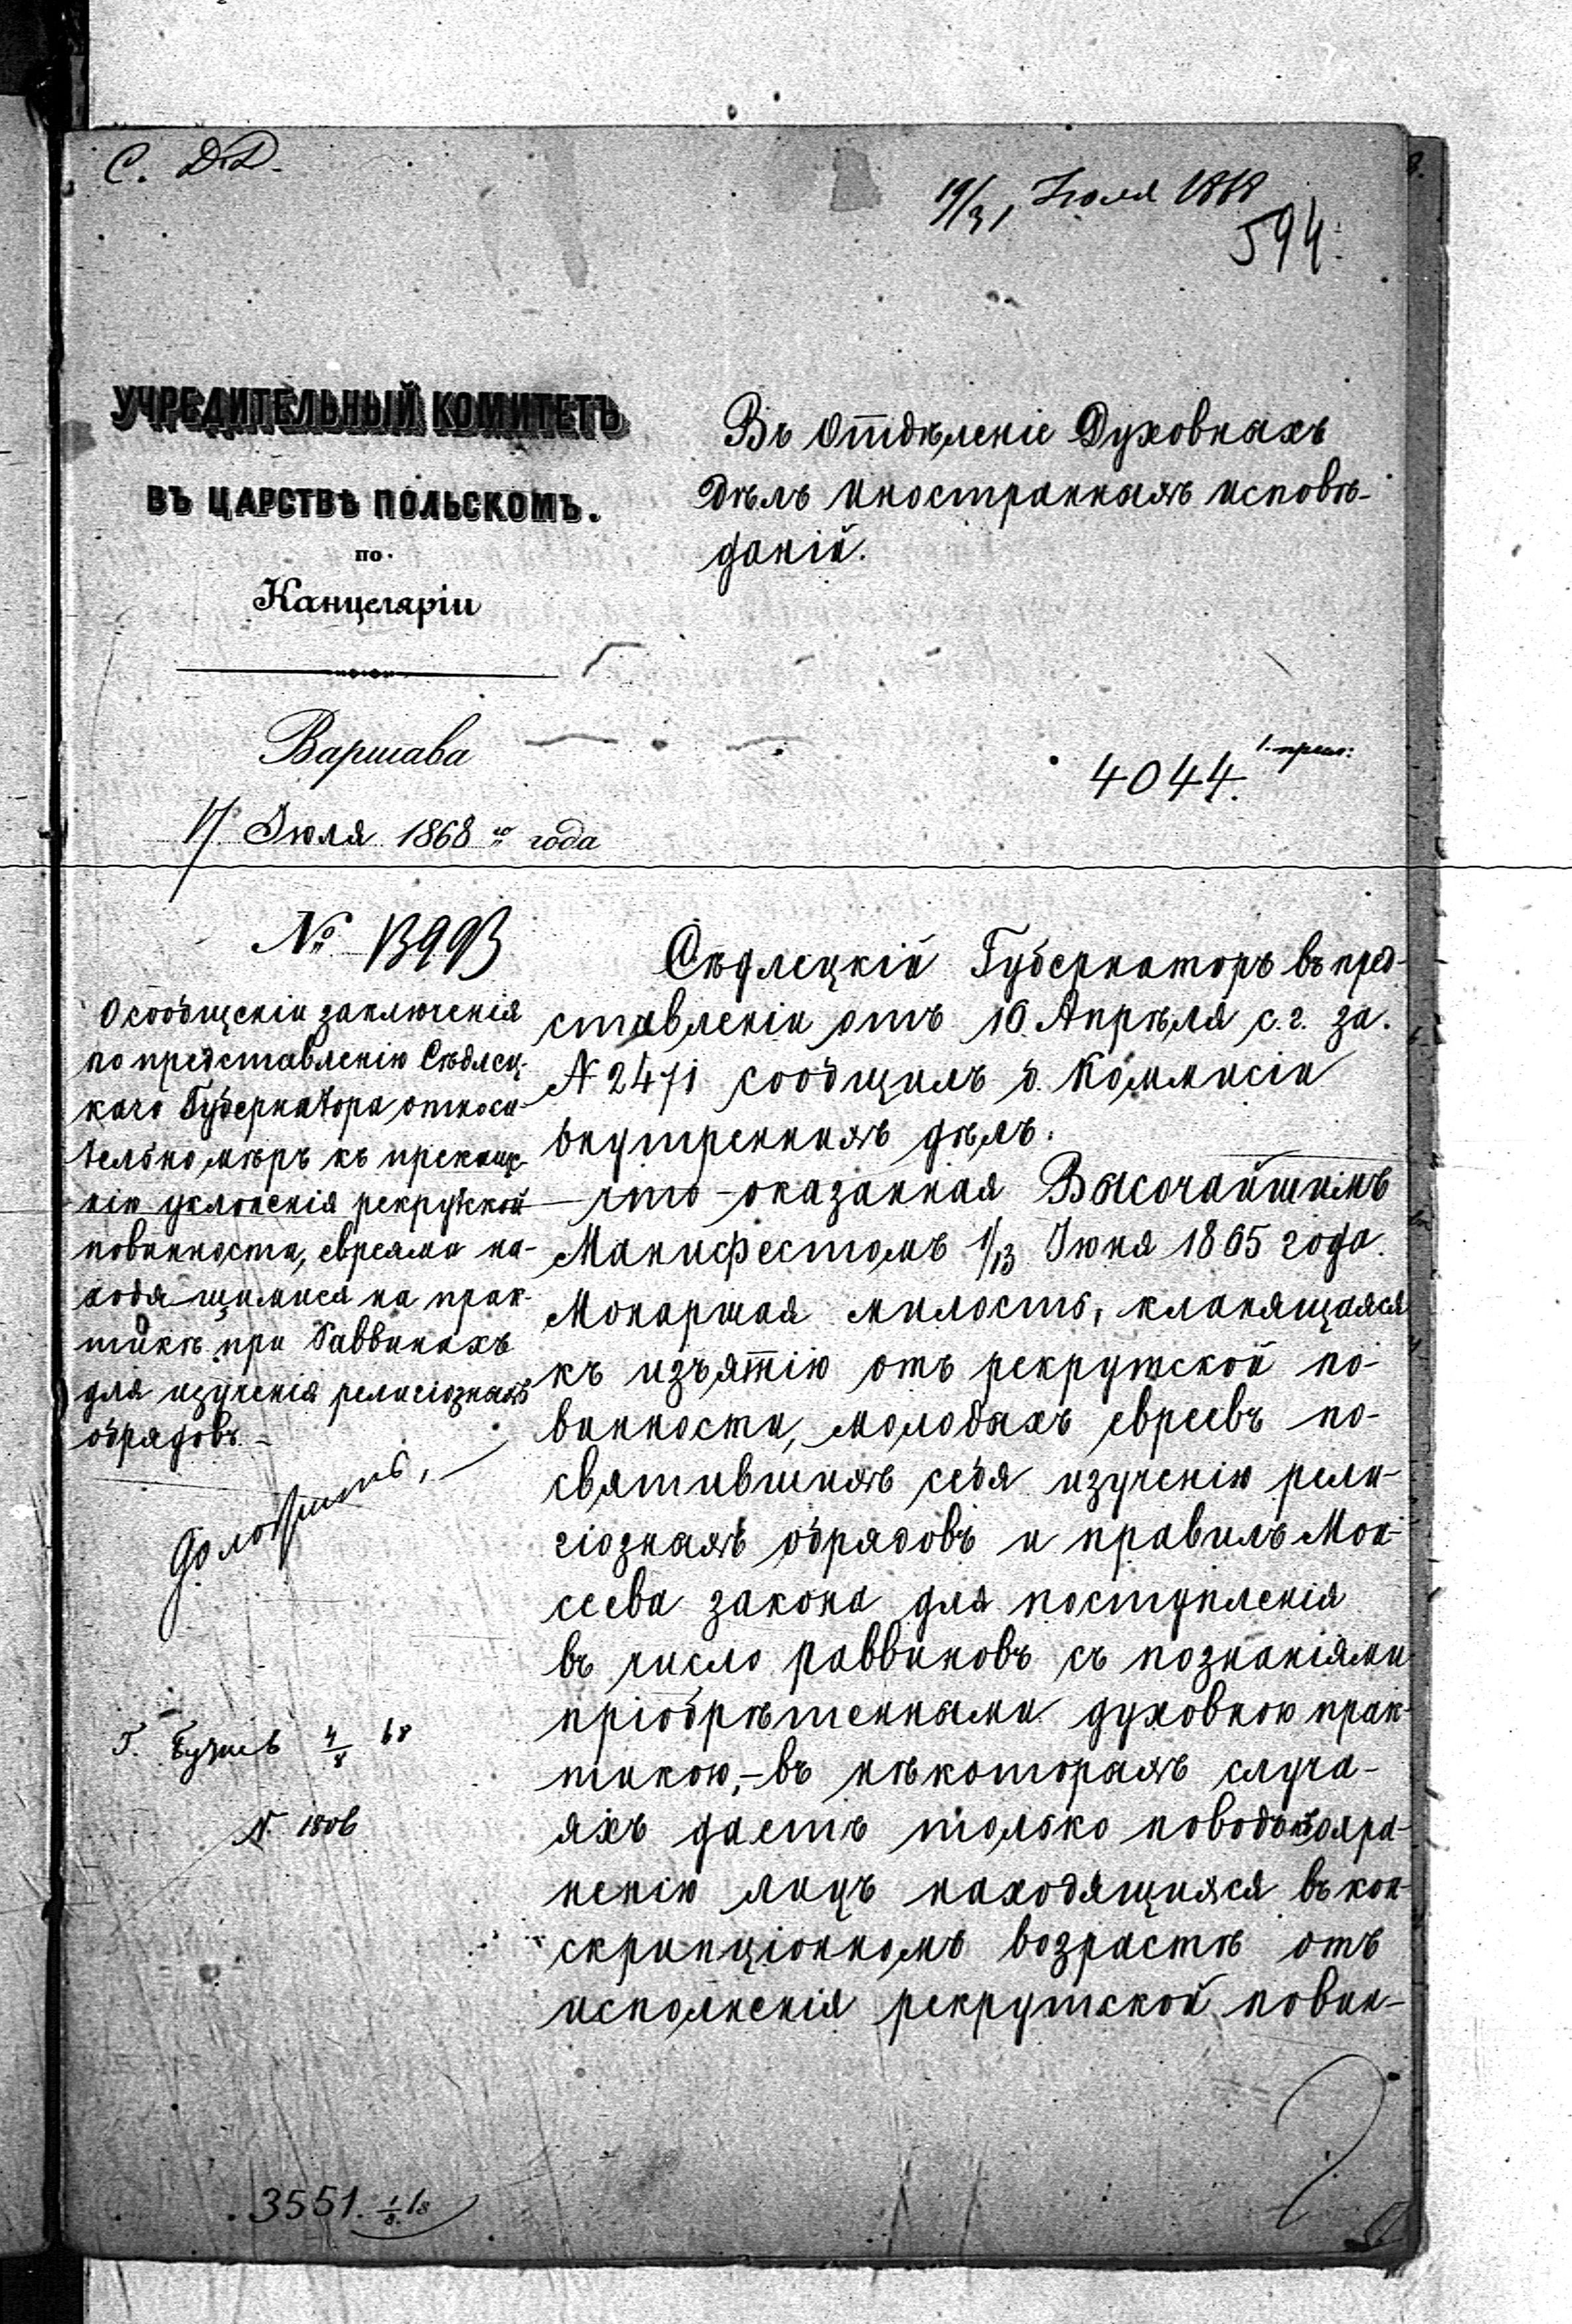 С. Д.Д.
19/31 Іюля 1868
594.
УЧРЕДИТЕЛЬНЫЙ КОМИТЕТЪ
ВЪ ЦАРСТВѢ ПОЛЬСКОМЪ.
по
Канцеляріи
Варшава
17 Іюля 1868 го года
№ 13993
О сообщеніи заключенія
по представленію Сѣдлец-
каго Губернатора, относи-
тельно мѣръ къ прекаще-
нію уклоненія рекрутской
повинности, евреями на-
ходящимися на прак-
тикѣ при Раввинахъ
для изученія религіозныхъ
обрядовъ.
Доложить,
Г. 4/8 68
N. 1806
3551. 1/8
Въ Отдѣленіе Духовныхъ
Дѣлъ Иностранныхъ исповѣ-
даній.
4044. 1. прил:
Сѣдлецкій Губернаторъ въ пред-
ставленіи отъ 10 Апрѣля с. г. за
N 2471 сообщилъ б. Коммисіи
внутреннихъ дѣлъ:
что оказанная Высочайшимъ
Манифестомъ 1/13 Іюня 1865 года
Монаршая милость, клонящаяся
къ изъятію отъ рекрутской по-
винности, молодыхъ евреевъ по-
святившихъ себя изученію рели-
гіозныхъ обрядовъ и правилъ Мои-
сеева закона для поступленія
въ число раввиновъ съ познаніями
пріобрѣтенными духовною прак-
тикою,- въ нѣкоторыхъ случа-
яхъ даетъ только поводъ къ охра-
ненію лицъ находящихся въ кон-
скрипціонномъ возрастѣ отъ
исполненія рекрутской повин-